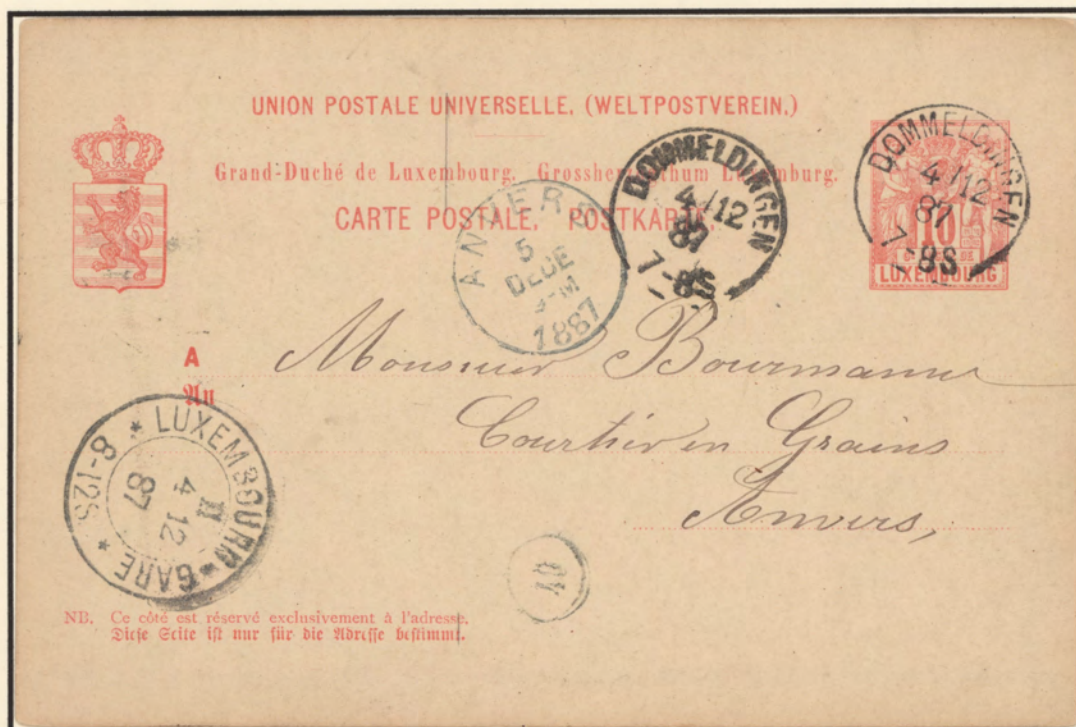 UNION POSTALE UNIVERSELLE. (WELTPOSTVEREIN.)
Grand-Duché de Luxembourg. Grossherzogthum Luxemburg.
CARTE POSTALE. POSTKARTE.
DOMMELDINGEN
4/12
87
7-8S
10
LUXEMBOURG
DOMMELDINGEN
4/12
87
7-8S
ANVERS
5
DECE
1887
A
An
Monsieur Bourmann
Courtier en Grains
Anvers,
LUXEMBOURG-GARE
II
4 12
87
8-12S
NB. Ce côté est réservé exclusivement à l'adresse.
Diese Seite ist nur für die Adresse bestimmt.